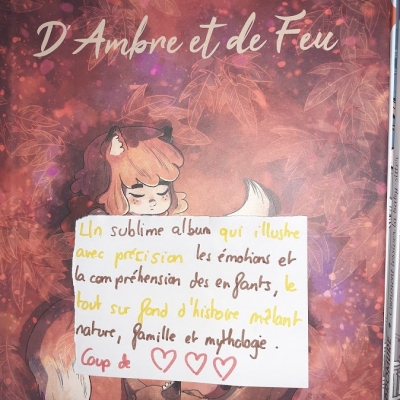 D'Ambre et de Feu
Un sublime album qui illustre
avec précision les émotions et
la compréhension des enfants, le
tout sur fond d'histoire mêlant
nature, famille et mythologie.
Coup de ♡♡♡